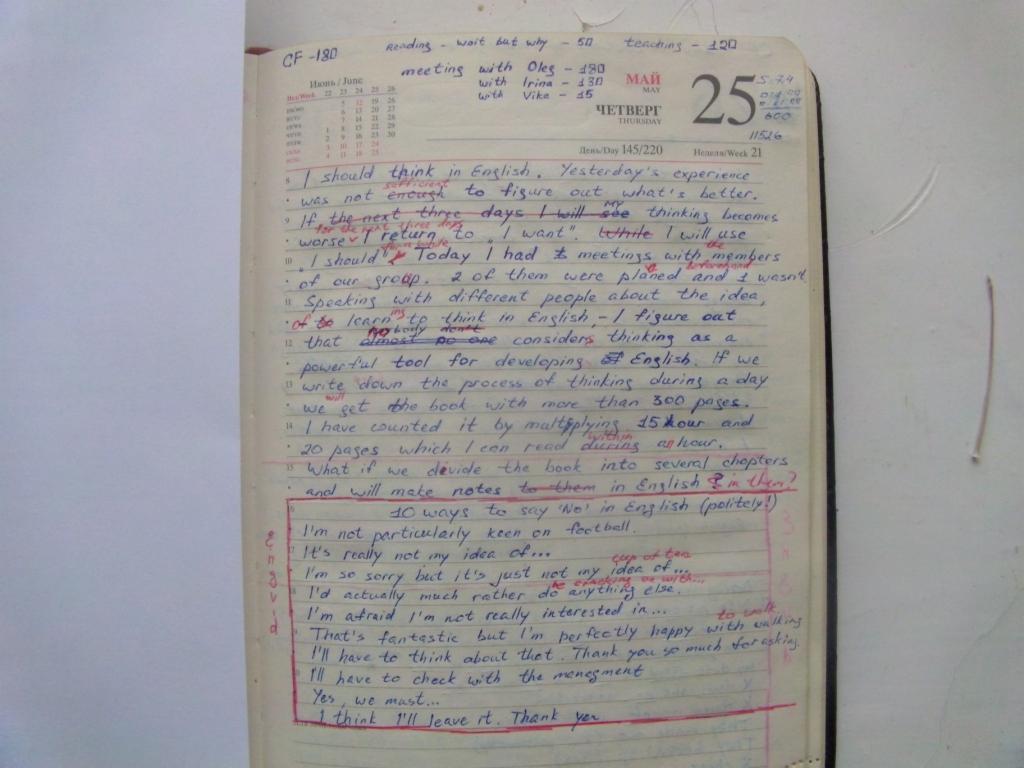 CF - 180
Reading - wait but why - 50 teaching - 120
meeting with Oleg - 180
with Irina - 130
with Vika - 15
Июнь / June
Нед/Week 22 23 24 25 26
5 12 19 26
6 13 20 27
7 14 21 28
1 8 15 22 29
2 9 16 23 30
3 10 17 24
4 11 18 25
МАЙ
MAY
ЧЕТВЕРГ
THURSDAY
25
600
11526
День/Day 145/220 Неделя/Week 21
8 I should think in English. Yesterday's experience
sufficient
was not enough to figure out what's better.
my
9 If the next three days I will see thinking becomes
for the next three days
worse I return to "I want". While I will use
the
10 "I should" Today I had meetings with members
beforehand
of our group. 2 of them were planed and 1 wasn't
11 Speaking with different people about the idea,
of to learning to think in English, - I figure out
nobody don't
12 that almost no one considers thinking as a
powerful tool for developing English. If we
13 write down the process of thinking during a day
will
we get the book with more than 300 pages.
14 I have counted it by multiplying 15 hour and
within
20 pages which I can read during an hour.
15 What if we devide the book into several chapters
and will make notes to them in English in them?
10 ways to say 'No' in English (politely!)
I'm not particularly keen on football.
17 It's really not my idea of...
cup of tea
I'm so sorry but it's just not my idea of...
be cracking on with...
18 I'd actually much rather do anything else.
I'm afraid I'm not really interested in...
to walk
That's fantastic but I'm perfectly happy with walking
I'll have to think about that. Thank you so much for asking.
I'll have to check with the menegment
Yes, we must...
I think I'll leave it. Thank you
engvid